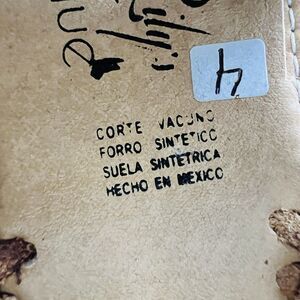 4
CORTE VACUNO
FORRO SINTETICO
SUELA SINTETRICA
HECHO EN MEXICO